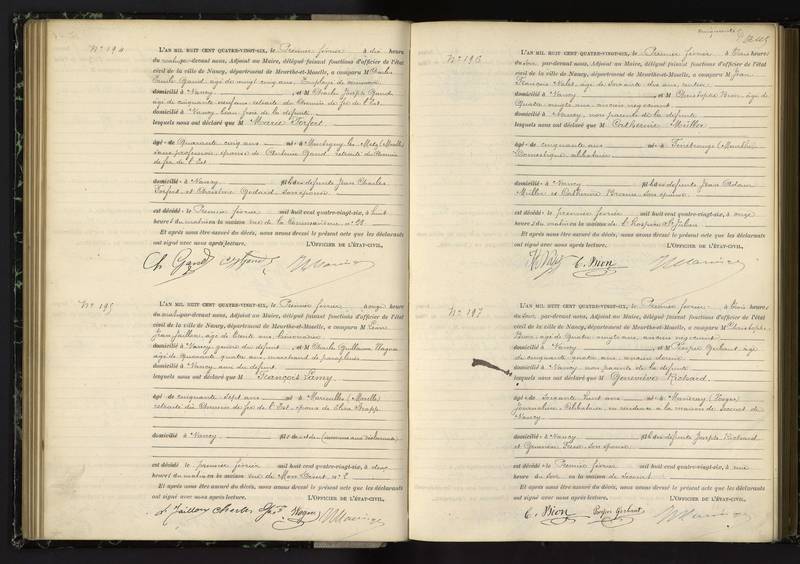 N° 194
L'AN MIL HUIT CENT QUATRE-VINGT-SIX, le Premier février à dix heures
du matin par-devant nous, Adjoint au Maire, délégué faisant fonctions d'officier de l'état
civil de la ville de Nancy, département de Meurthe-et-Moselle, a comparu M Charles
Emile Gand, âgé de vingt cinq ans, Employé de commerce
domicilié à Nancy, et M Charles Joseph Gand
âgé de cinquante neuf ans, retraité du Chemin de fer de l'Est
domicilié à Nancy, beau frère de la défunte
lesquels nous ont déclaré que M Marie Forfert
âgé e de Quarante cinq ans né e à Montigny les Metz (Moselle)
sans profession, épouse de Antoine Gand, retraité du Chemin
de fer de l'Est
domicilié e à Nancy fille des défunts Jean Charles
Forfert et Christine Godard, son épouse
est décédé e le Premier février mil huit cent quatre-vingt-six, à huit
heures du matin en la maison rue de la Commanderie, n° 28
Et après nous être assuré du décès, nous avons dressé le présent acte que les déclarants
ont signé avec nous après lecture. L'OFFICIER DE L'ÉTAT-CIVIL,
Ch Gand
N° 195
L'AN MIL HUIT CENT QUATRE-VINGT-SIX, le Premier février à onze heures
du matin par-devant nous, Adjoint au Maire, délégué faisant fonctions d'officier de l'état
civil de la ville de Nancy, département de Meurthe-et-Moselle, a comparu M Léon
Jean Jaillon, âgé de trente six
domicilié à Nancy, gendre du défunt, et M Charles Guillaume Wagner
âgé de quarante quatre ans, marchand de parapluies
domicilié à Nancy, ami du défunt
lesquels nous ont déclaré que M François Lamy
âgé de cinquante sept ans né à Marieulles (Moselle)
retraité du Chemin de fer de l'Est, époux de Elisa
domicilié à Nancy
est décédé le premier février mil huit cent quatre-vingt-six, à deux
heures du matin en la maison rue de Mon Désert, n°
Et après nous être assuré du décès, nous avons dressé le présent acte que les déclarants
ont signé avec nous après lecture. L'OFFICIER DE L'ÉTAT-CIVIL,
L Jaillon Charles Wagner
N° 196
L'AN MIL HUIT CENT QUATRE-VINGT-SIX, le Premier février à trois heures
du soir, par-devant nous, Adjoint au Maire, délégué faisant fonctions d'officier de l'état
civil de la ville de Nancy, département de Meurthe-et-Moselle, a comparu M Jean
François âgé de soixante dix ans, rentier
domicilié à Nancy, et M Christophe Bion, âgé de
Quatre vingts ans, ancien négociant
domicilié à Nancy, non parents de la défunte
lesquels nous ont déclaré que M Catherine Müller
âgé e de cinquante ans né e à Fénétrange (Meurthe)
Domestique, célibataire
domicilié e à Nancy fille des défunts Jean Adam
Müller et Catherine son épouse
est décédé e le premier février mil huit cent quatre-vingt-six, à onze
heures du matin en la maison de l'hospice St Julien
Et après nous être assuré du décès, nous avons dressé le présent acte que les déclarants
ont signé avec nous après lecture. L'OFFICIER DE L'ÉTAT-CIVIL,
C. Bion
N° 197
L'AN MIL HUIT CENT QUATRE-VINGT-SIX, le Premier février à trois heures
du soir, par-devant nous, Adjoint au Maire, délégué faisant fonctions d'officier de l'état
civil de la ville de Nancy, département de Meurthe-et-Moselle, a comparu M Christophe
Bion, âgé de Quatre vingts ans, ancien négociant
domicilié à Nancy, et M Prosper Gerhaut, âgé
de cinquante quatre ans, ancien
domicilié à Nancy, non parents de la défunte
lesquels nous ont déclaré que M Geneviève Richard
âgé e de Soixante huit ans né e à (Vosges)
Journalière, Célibataire, en résidence à la maison de Secours de
Nancy
domicilié e à Nancy fille des défunts Joseph Richard
et son épouse
est décédé e le Premier février mil huit cent quatre-vingt-six, à une
heure du soir en la maison de Secours
Et après nous être assuré du décès, nous avons dressé le présent acte que les déclarants
ont signé avec nous après lecture. L'OFFICIER DE L'ÉTAT-CIVIL,
C. Bion Prosper Gerhaut